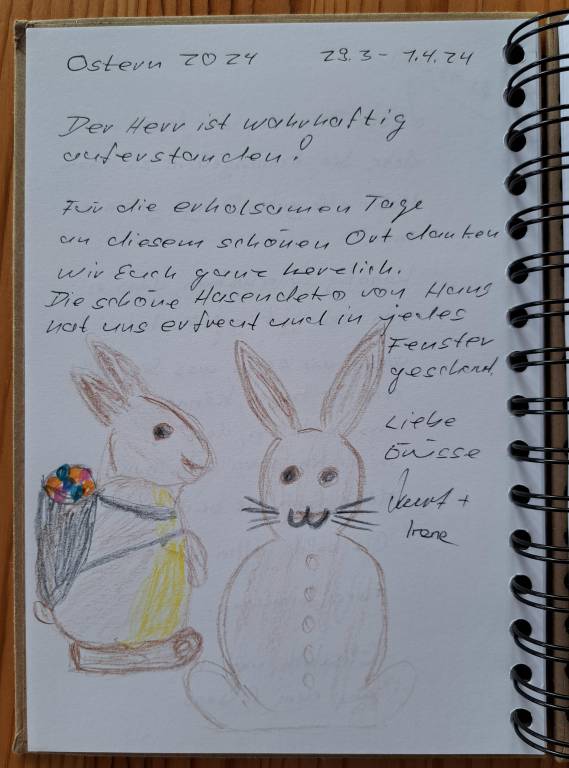 Ostern 2024 29.3 - 1.4.24
Der Herr ist wahrhaftig
auferstanden!
Für die erholsamen Tage
an diesem schönen Ort danken
wir Euch ganz herzlich.
Die schöne Hasendeko von Hans
hat uns erfreut und in jedes
Fenster
geschaut.
Liebe
Grüsse
+
Irene